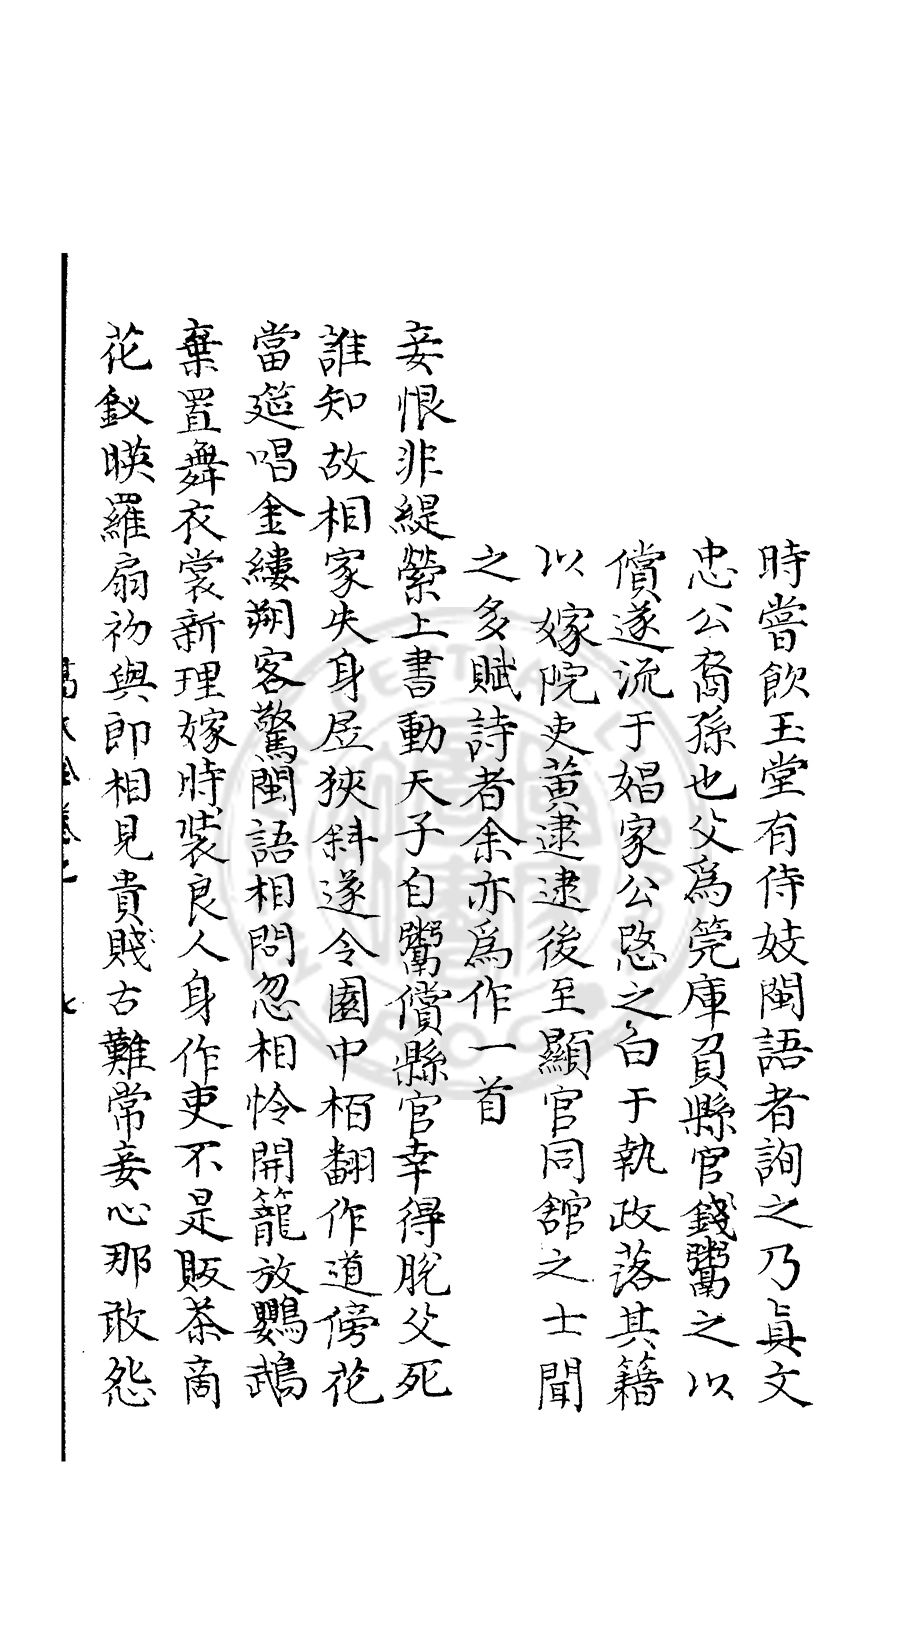 時嘗飲玉堂有侍妓閩語者詢之乃眞文
忠公裔孫也父爲筦庫負縣官錢鬻之以
償遂流于娼家公愍之白于執政落其籍
以嫁院吏黃逮逮後至顯官同舘之士聞
之多賦詩者余亦爲作一首
妾恨非緹縈上書動天子自鬻償縣官幸得脫父死
誰知故相家失身居狹斜遂令園中栢翻作道傍花
當筵唱金縷朔客驚閩語相問忽相怜開籠放鸚鵡
棄置舞衣裳新理嫁時裝良人身作吏不是販茶商
花釵暎羅扇初與郎相見貴賤古難常妾心那敢怨